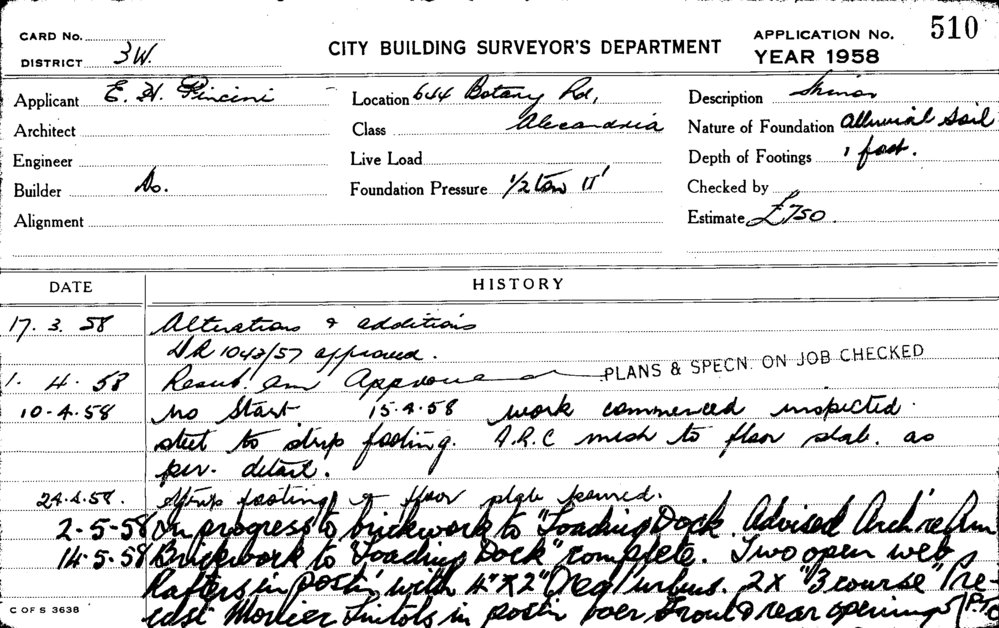 CARD No.
DISTRICT 3W.
CITY BUILDING SURVEYOR'S DEPARTMENT
APPLICATION No. 510
YEAR 1958
Applicant E. H. Pincini
Location 644 Botany Rd,
Description Minor
Architect
Class Alexandria
Nature of Foundation Alluvial Soil
Engineer
Live Load
Depth of Footings 1 foot.
Builder Do.
Foundation Pressure 1/2 ton
Checked by
Alignment
Estimate £750.
DATE HISTORY
17. 3. 58 Alterations & additions
1043/57 approved.
1. 4. 58 Resub. Am Approved PLANS & SPECN. ON JOB CHECKED
10-4-58 no Start 15.4.58 work commenced inspected
steel to strip footing. A.R.C mesh to floor slab. as
per. detail.
24.4.58. Strip footing & floor slab poured.
2-5-58 In progress to brickwork to "Loading Dock. Advised Arch re Am
14-5-58 Brickwork to "Loading Dock" complete. Two open web
Rafters in postn, with 4" x 2" Oreg purlins. 2X "3 course" Pre-
cast Monier Lintols in postn over Front & rear openings P.T.O
C OF S 3638